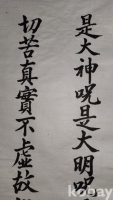 是大神呪是大明呪
切苦真實不虛故
kobay